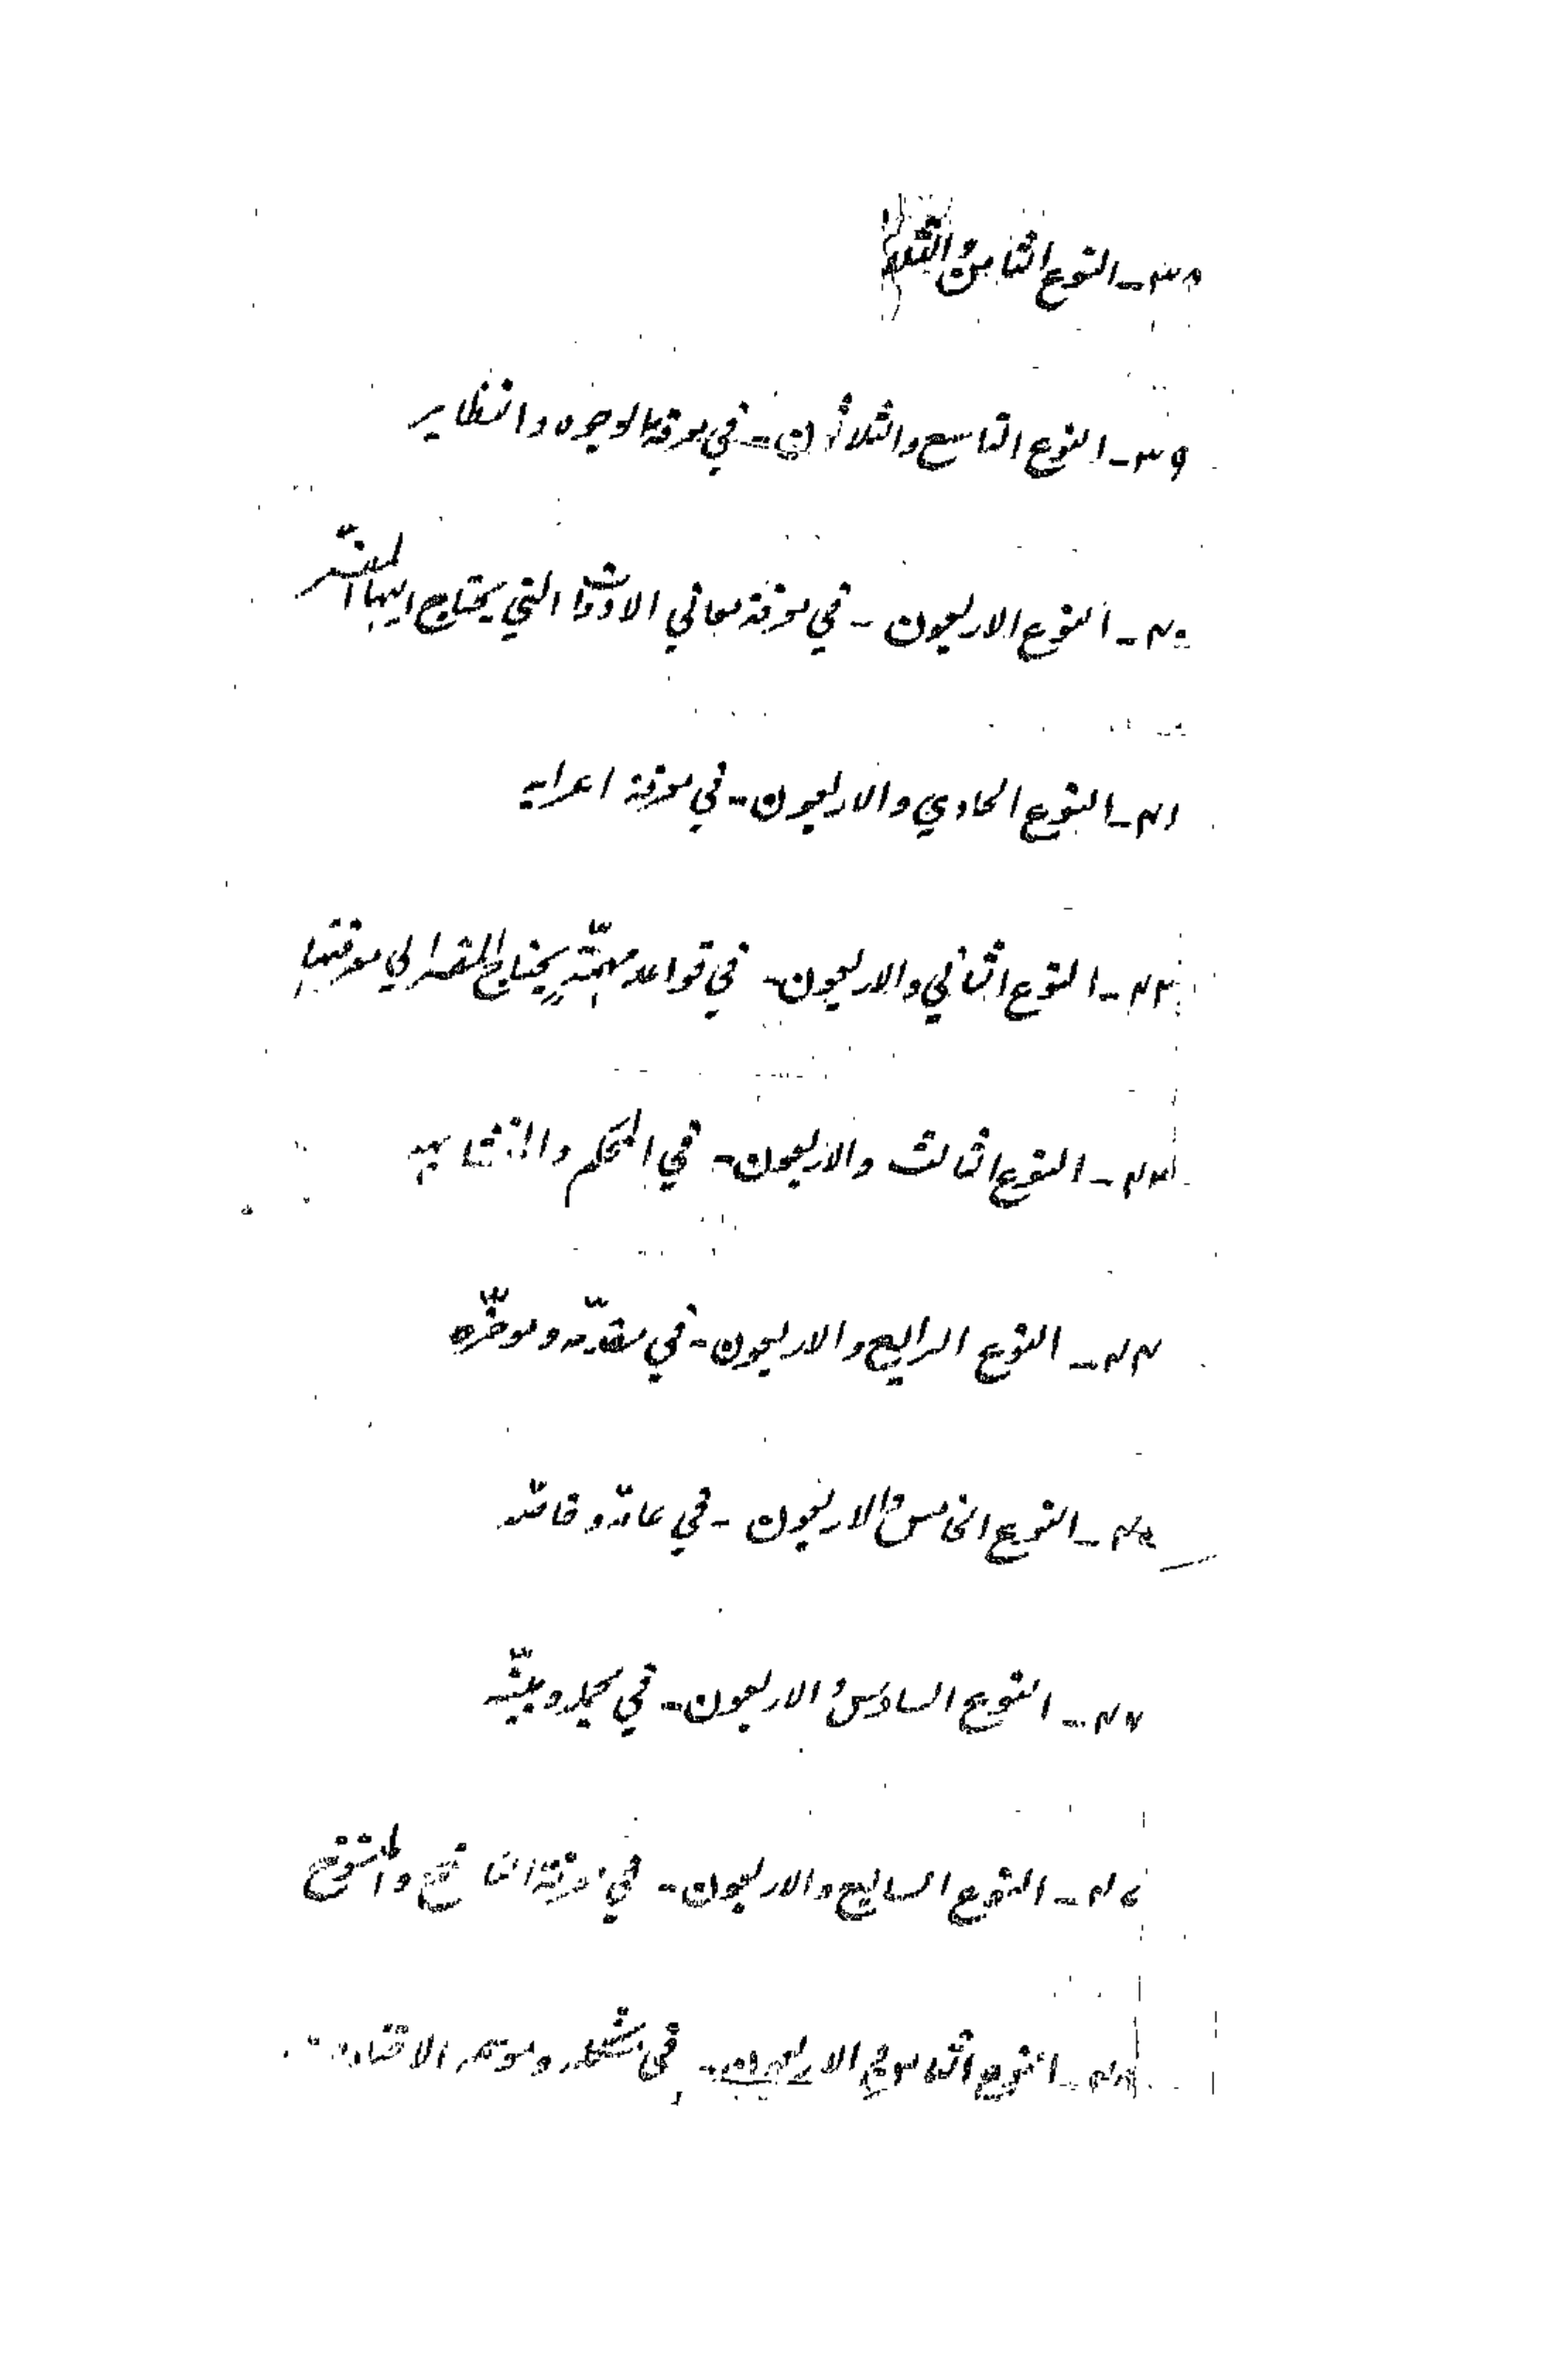 ٣٨ـ النوع الثامن والثلا
٣٩ـ النوع التاسع والثلاثون ـ في معرفة الوجوه والنظاير
٤٠ـ النوع الاربعون ـ في معرفة معاني الادوات التي يحتاج اليها المفسّر
٤١ـ النوع الحادي والاربعون ـ في معرفة اعرابه
٤٢ـ النوع الثاني والاربعون ـ في قواعد مهمّة يحتاج المفسر الي معرفتها
٤٣ـ النوع الثالث والاربعون ـ في المحكم والمتشابه
٤٤ـ النوع الرابع والاربعون ـ في مقدّمه وموخّره
٤٥ـ النوع الخامس والاربعون ـ في عامّه وخاصّه
٤٦ـ النوع السادس والاربعون ـ في مجمله ومبيّنه
٤٧ـ النوع السابع والاربعون ـ في معرفة الناسخ والمنسوخ
٤٨ـ النوع الثامن والاربعون ـ في مشكله وموهم الاختلاف